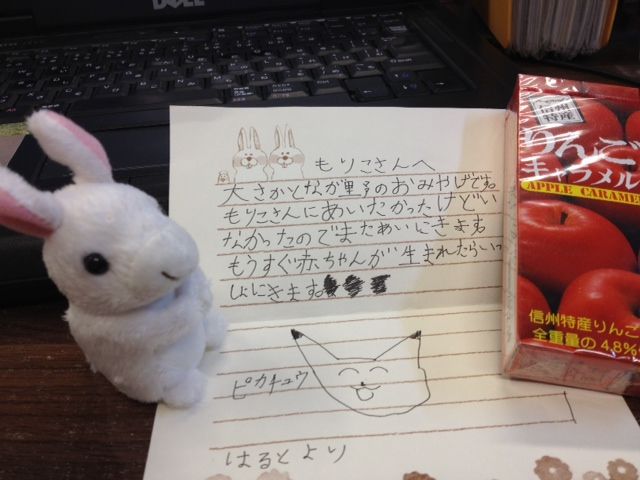 DELL
もりこさんへ
大さかとなが野のおみやげです
もりこさんにあいたかったけどい
なかったのでまたあいにきます
もうすぐ赤ちゃんが生まれたらいっ
しょにきます
ピカチュウ
はるとより
信州
特産
りんご
キャラメル
APPLE CARAME
信州特産りんご
全重量の4.8%